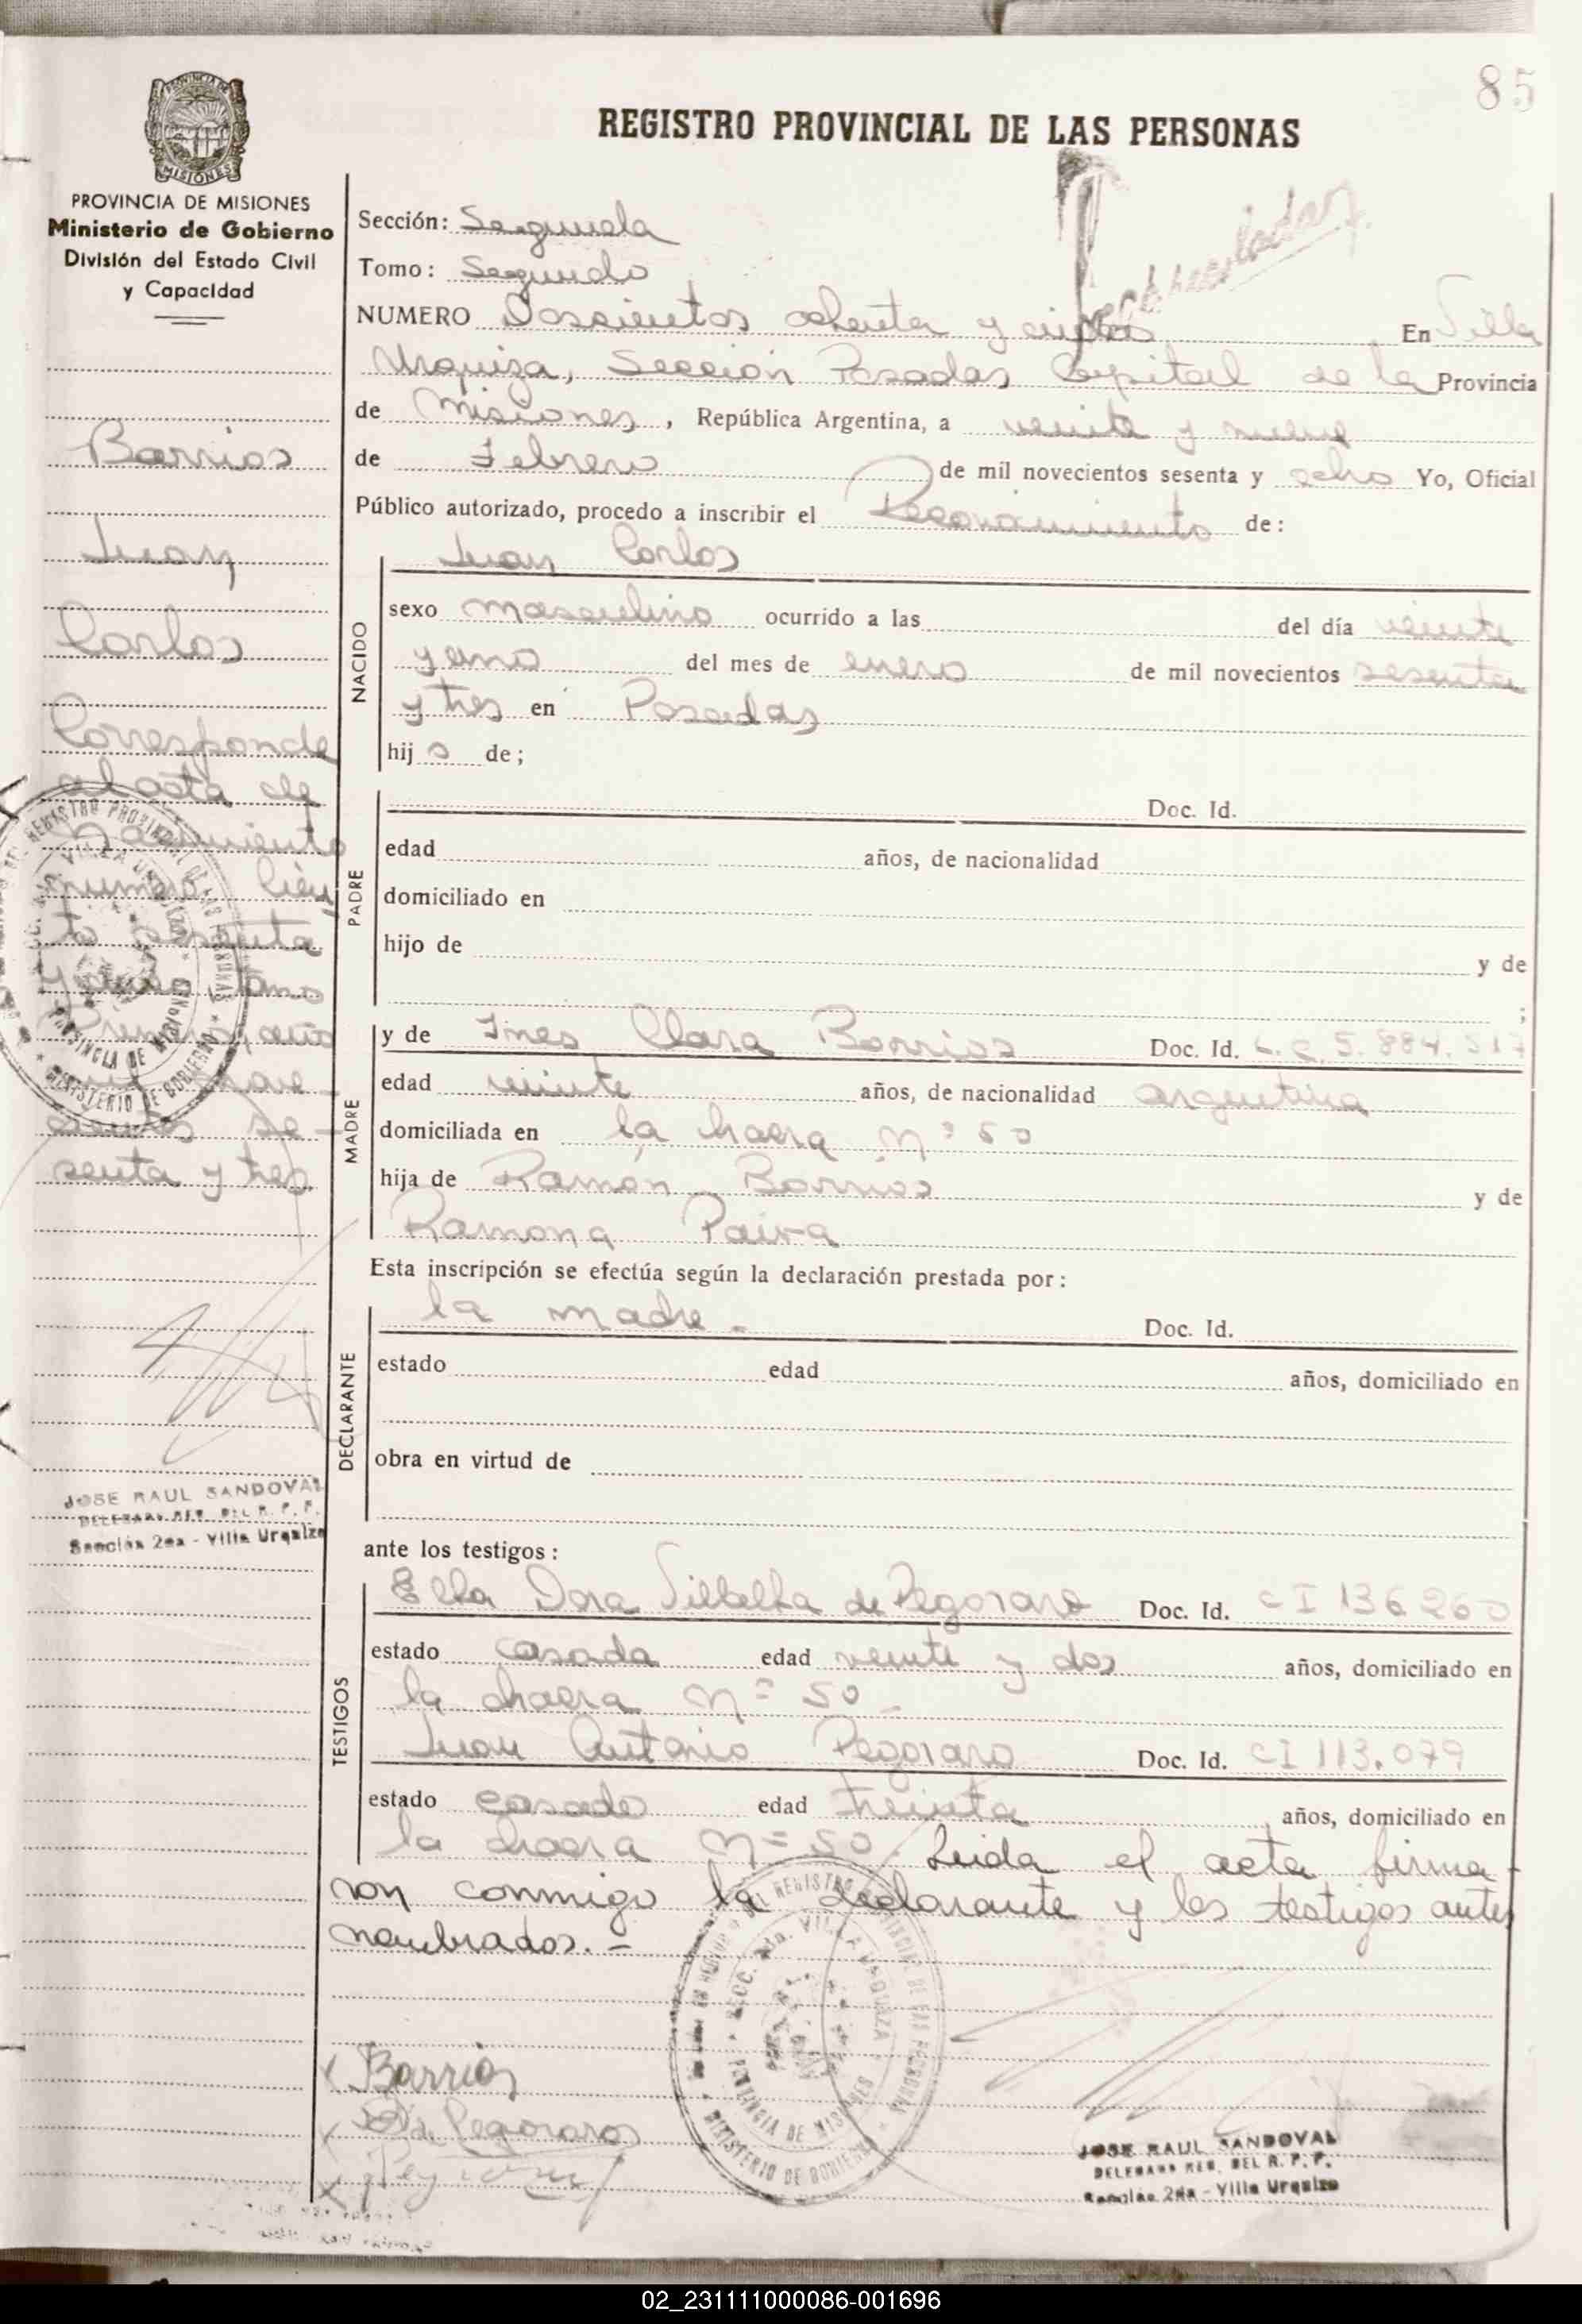 85
REGISTRO PROVINCIAL DE LAS PERSONAS
PROVINCIA DE MISIONES
Ministerio de Gobierno
División del Estado Civil
y Capacidad
Barrios
Juan
Carlos
Corresponde
al acta de
nacimiento
numero Cien
to sesenta
y tomo
Primero, año
mil nove
cientos se-
senta y tres
JOSE RAUL SANDOVAL
DELEGADO REG. DEL R. P. P.
Sección 2da - Villa Urquiza
Sección: Segunda
Tomo: Segundo
NUMERO Doscientos ochenta y En Villa
Urquiza, Sección Posadas Capital de la Provincia
de Misiones, República Argentina, a veinte y nueve
de Febrero de mil novecientos sesenta y ocho Yo, Oficial
Público autorizado, procedo a inscribir el Reconocimiento de:
NACIDO
Juan Carlos
sexo masculino ocurrido a las del día veinte
y uno del mes de enero de mil novecientos sesenta
y tres en Posadas
hijo de;
PADRE
Doc. Id.
edad años, de nacionalidad
domiciliado en
hijo de y de
;
MADRE
y de Ines Clara Barrios Doc. Id. L.C. 5.884.517
edad veinte años, de nacionalidad argentina
domiciliada en la chacra Nº 50
hija de Ramón Barrios y de
Ramona Paiva
Esta inscripción se efectúa según la declaración prestada por:
DECLARANTE
la madre.- Doc. Id.
estado edad años, domiciliado en
obra en virtud de
ante los testigos:
TESTIGOS
Ella Dora Villalba de Pegoraro Doc. Id. CI 136260
estado casada edad veinte y dos años, domiciliado en
la chacra Nº 50 -
Juan Antonio Pegoraro Doc. Id. CI 113.079
estado casado edad treinta años, domiciliado en
la chacra Nº 50. Leida el acta firma-
ron conmigo la declarante y los testigos antes
nombrados.-
Barrios
de Pegoraro
JOSE RAUL SANDOVAL
DELEGADO REG. DEL R. P. P.
Sección 2da - Villa Urquiza
02_231111000086-001696